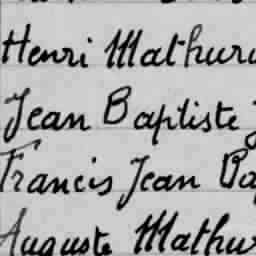 Henri Mathuri
Jean Baptiste J
Francis Jean Ba
Auguste Mathur